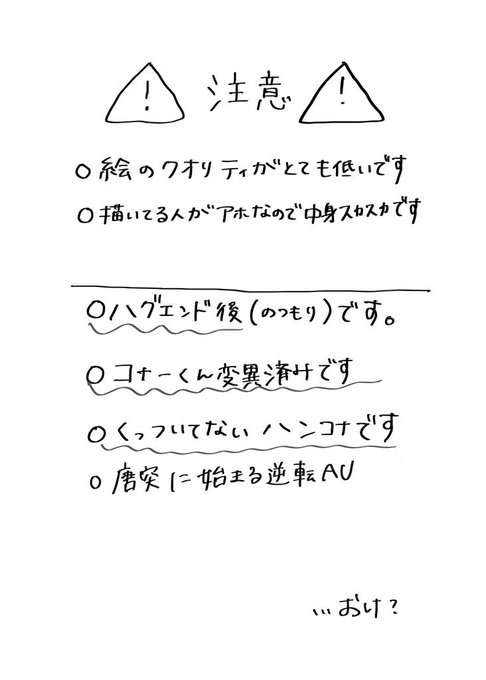 ! 注意 !
○ 絵のクオリティがとても低いです
○ 描いてる人がアホなので中身スカスカです
○ ハグエンド後(のつもり)です。
○ コナーくん変異済みです
○ くっついてないハンコナです
○ 唐突に始まる逆転AU
...おけ?